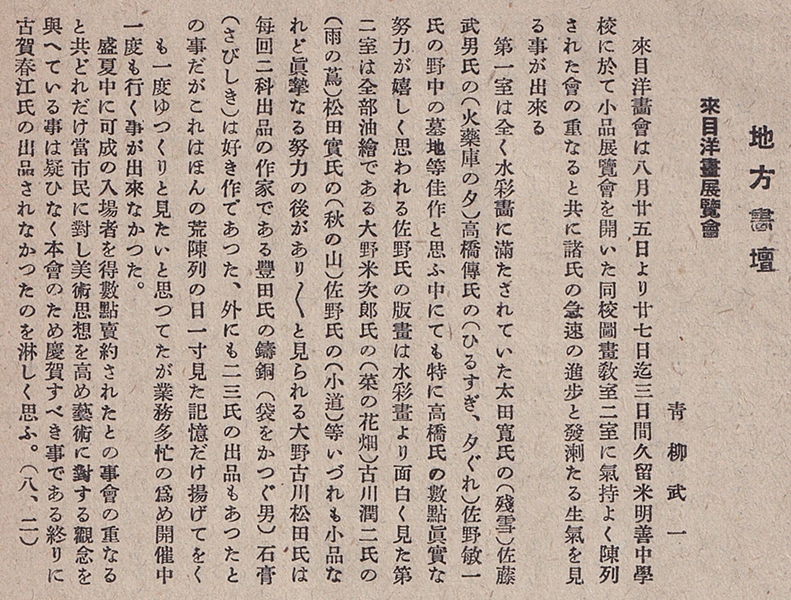 地方畫壇
來目洋畫展覽會
靑柳武一
來目洋畫會は八月廿五日より廿七日迄三日間久留米明善中學
校に於て小品展覽會を開いた同校圖畫敎室二室に氣持よく陳列
された會の重なると共に諸氏の急速の進步と發溂たる生氣を見
る事が出來る
第一室は全く水彩畫に滿たされていた太田寬氏の(殘雪)佐藤
武男氏の(火藥庫の夕)高橋傳氏の(ひるすぎ、夕ぐれ)佐野敏一
氏の野中の墓地等佳作と思ふ中にても特に高橋氏の數點眞實な
努力が嬉しく思われる佐野氏の版畫は水彩畫より面白く見た第
二室は全部油繪である大野米次郞氏の(菜の花畑)古川潤二氏の
(雨の蔦)松田實氏の(秋の山)佐野氏の(小道)等いづれも小品な
れど眞摯なる努力の後があり〱と見られる大野古川松田氏は
每回二科出品の作家である豐田氏の鑄銅(袋をかつぐ男)石膏
(さびしき)は好き作であつた、外にも二三氏の出品もあつたと
の事だがこれはほんの荒陳列の日一寸見た記憶だけ揚げてをく
も一度ゆつくりと見たいと思つてたが業務多忙の爲め開催中
一度も行く事が出來なかつた。
盛夏中に可成の入場者を得數點賣約されたとの事會の重なる
と共どれだけ當市民に對し美術思想を高め藝術に對する觀念を
與へている事は疑ひなく本會のため慶賀すべき事である終りに
古賀春江氏の出品されなかつたのを淋しく思ふ。(八、二)